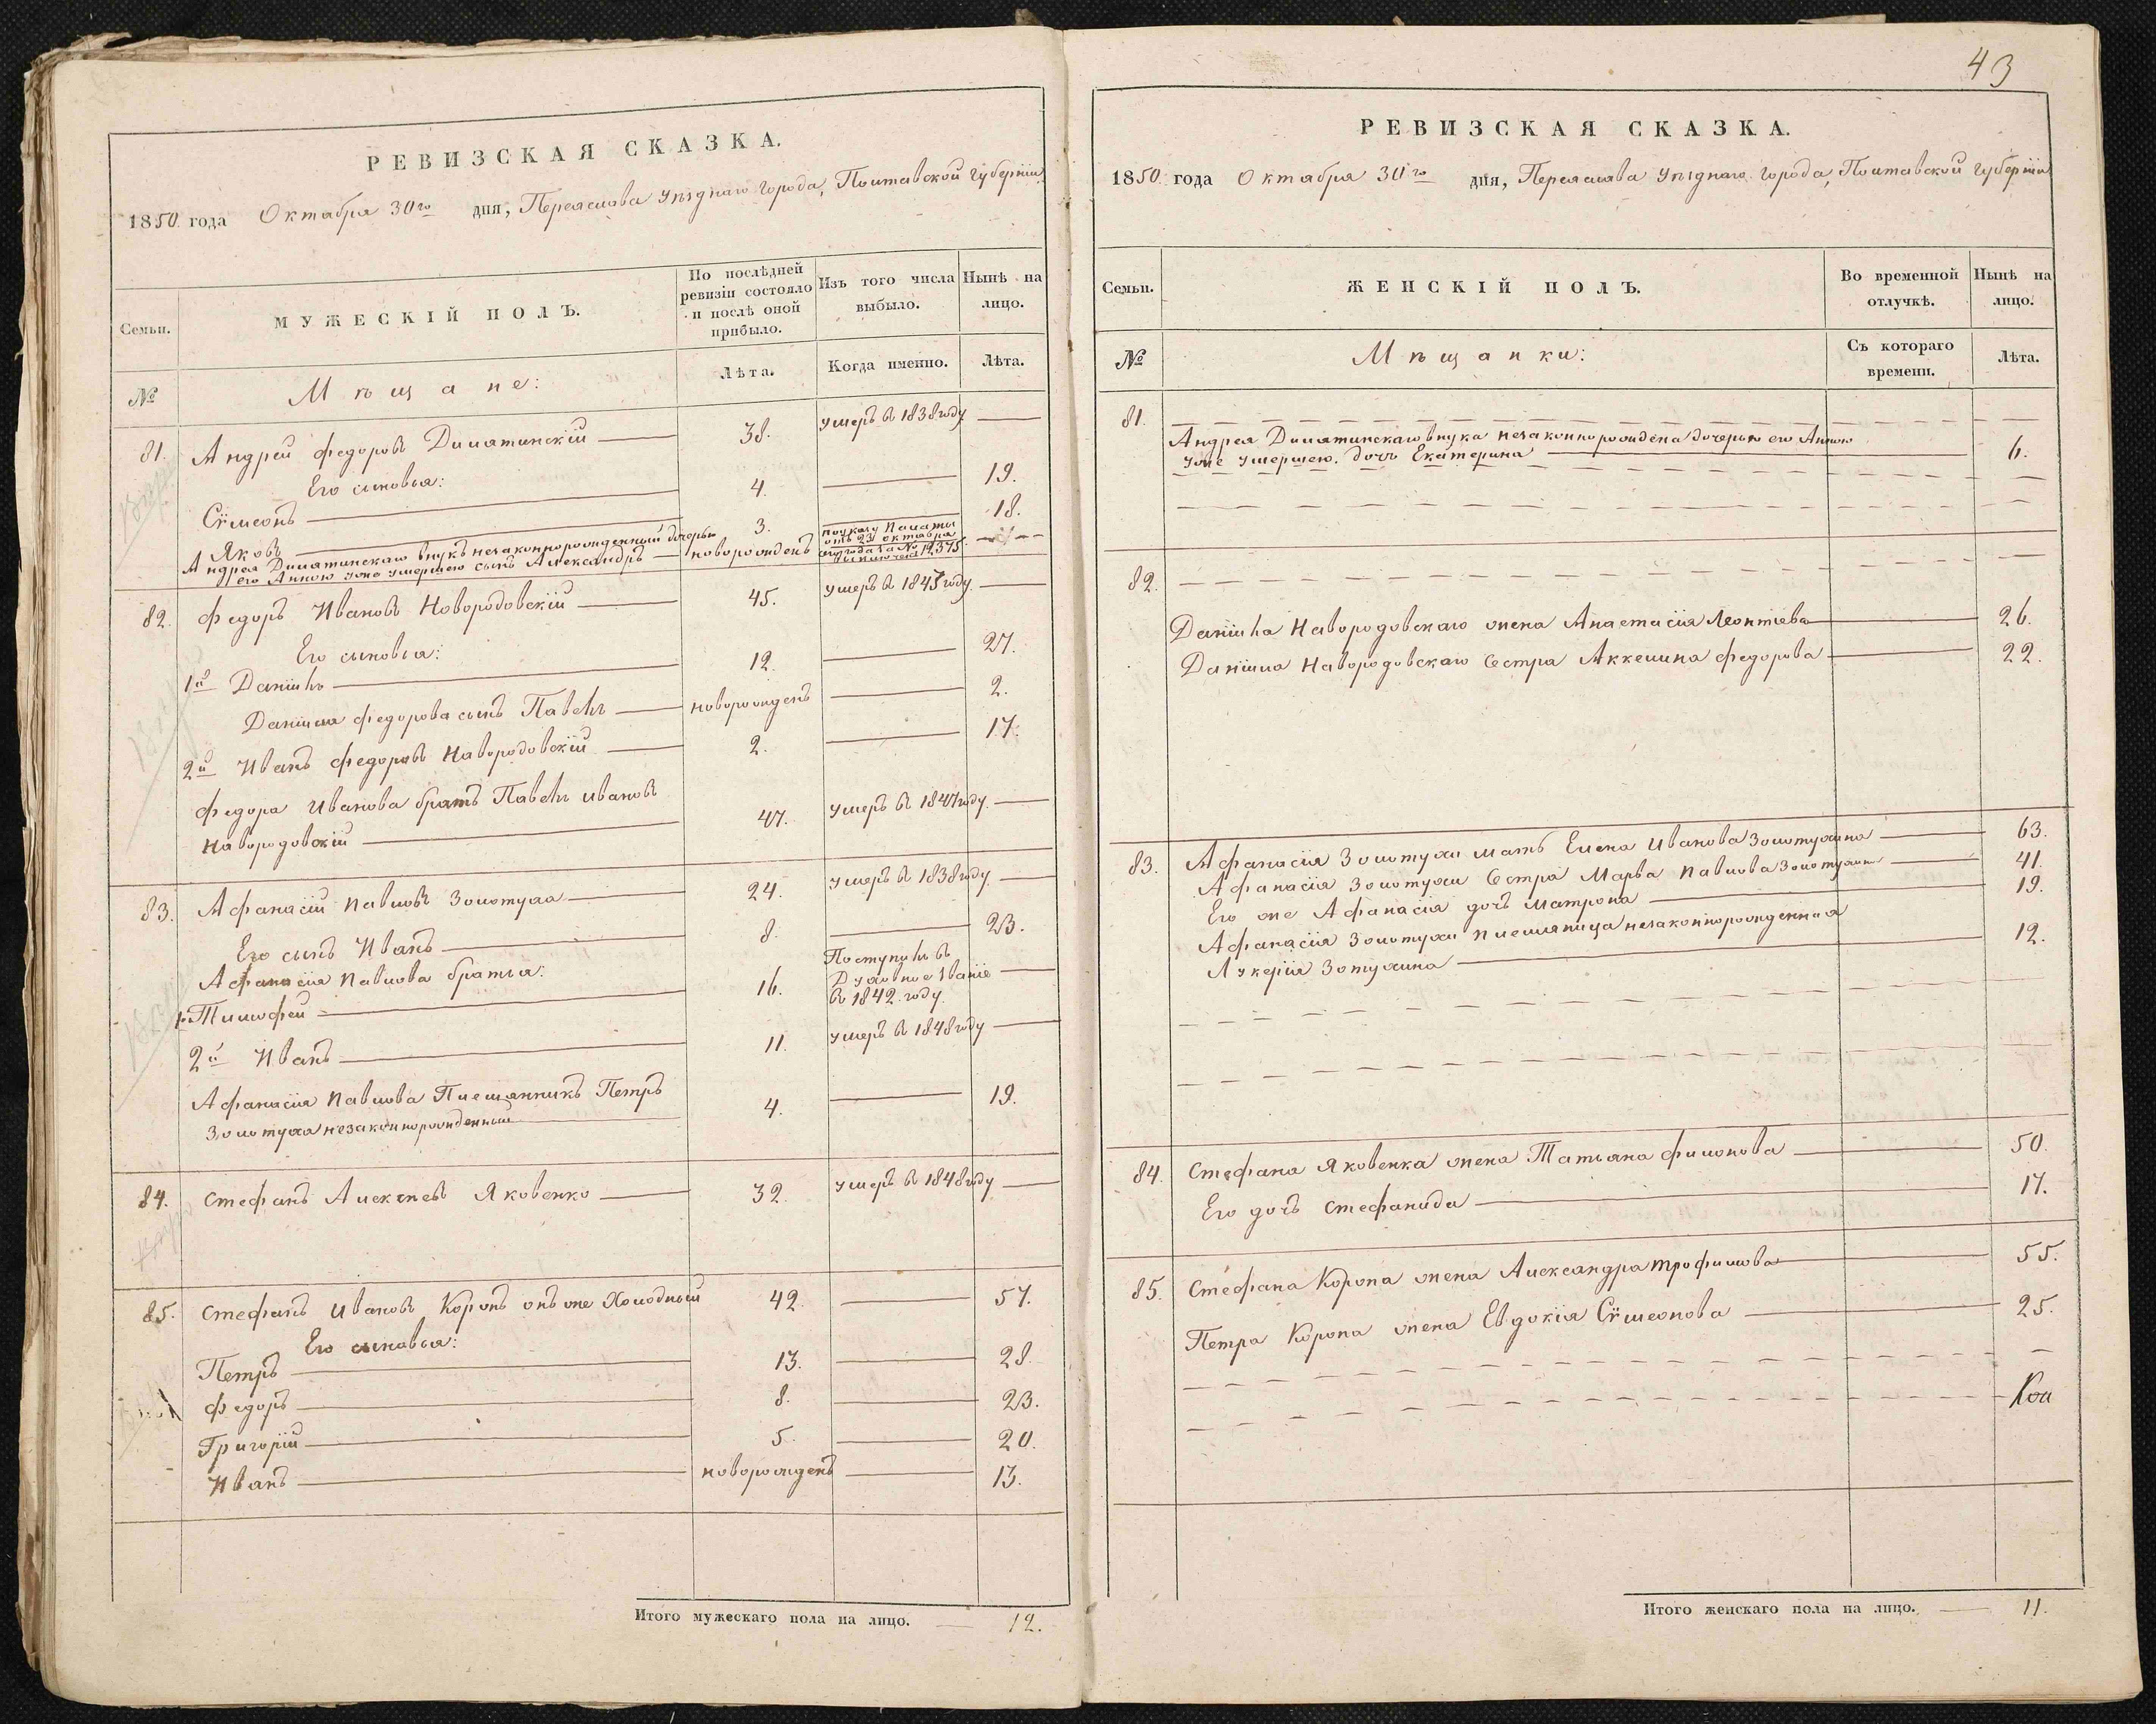 РЕВИЗСКАЯ СКАЗКА.
1850 года Октабря 30го дня, Переяслова Уѣзднаго города, Полтавской Губерніи
Семьи.
МУЖЕСКІЙ ПОЛЪ.
По послѣдней ревизіи состояло и послѣ оной прибыло.
Изъ того числа выбыло.
Нынѣ на лицо.
№
Мѣщане:
Лѣта.
Когда именно.
Лѣта.
81. Андрей Федоровъ 38. умеръ въ 1838 году —
Его сыновья:
Сѵмеонъ 4. — 19.
Яковъ 3. — 18.
Андрея внукъ незаконнорожденный дочерью
его Анною уже умершею сынъ Александръ — новорожденъ
по указу Палаты
отъ 23 октабря
сего года за № 12375
82. Федоръ Ивановъ Новородовскій — 45. умеръ въ 1847 году. —
Его сыновья:
1й Даніилъ 12. — 27.
Даніила Федорова сынъ Павелъ — новорожденъ — 2.
2й Иванъ Федоровъ Навородовскій — 2. — 17.
Федора Иванова братъ Павелъ Ивановъ
Навородовскій — 47. умеръ въ 1847 году. —
83. Афанасій Павловъ Золотуха — 24. умеръ въ 1838 году —
Его сынъ Иванъ — 8. — 23.
Афанасія Павлова братья:
Тимофей — 16. Поступилъ въ
Духовное званіе —
въ 1842. году.
2й Иванъ — 11. умеръ въ 1848 году —
Афанасія Павлова Племянникъ Петръ
Золотуха незаконнорожденный 4. — 19.
84. Стефанъ Алексѣевъ Яковенко — 32. умеръ въ 1848 году —
85. Стефанъ Ивановъ Коропъ онъ же Холодный 42. — 57.
Его сыновья:
Петръ — 13. — 28.
Федоръ — 8. — 23.
Григорій — 5. — 20.
Иванъ — новорожденъ — 13.
Итого мужескаго пола на лицо. — 12.
43
РЕВИЗСКАЯ СКАЗКА.
1850 года Октабря 30го дня, Переяслава Уѣзднаго города, Полтавской Губерніи
Семьи.
ЖЕНСКІЙ ПОЛЪ.
Во временной отлучкѣ.
Нынѣ на лицо.
№
Мѣщанки:
Съ котораго времени.
Лѣта.
81.
Андрея внука незаконнорождена дочерью его Анною
уже умершею. дочь Екатерина — 6.
82.
Даніила Навородовскаго жена Анастасія Леонтіева — 26.
Даніила Навородовскаго Сестра Аккелина Федорова — 22.
83. Афанасія Золотухи мать Елена Иванова Золотухина — 63.
Афанасія Золотухи Сестра Марѳа Павлова Золотухина — 41.
Его же Афанасія дочь Матрона — 19.
Афанасія Золотухи племяница незаконнорожденная
Лукерія Зотухина — 12.
84. Стефана Яковенка жена Татьяна Филонова — 50.
Его дочь Стефанида — 17.
85. Стефана Коропа жена Александра Трофимова — 55.
Петра Коропа жена Евдокія Сѵмеонова — 25.
Итого женскаго пола на лицо. — 11.